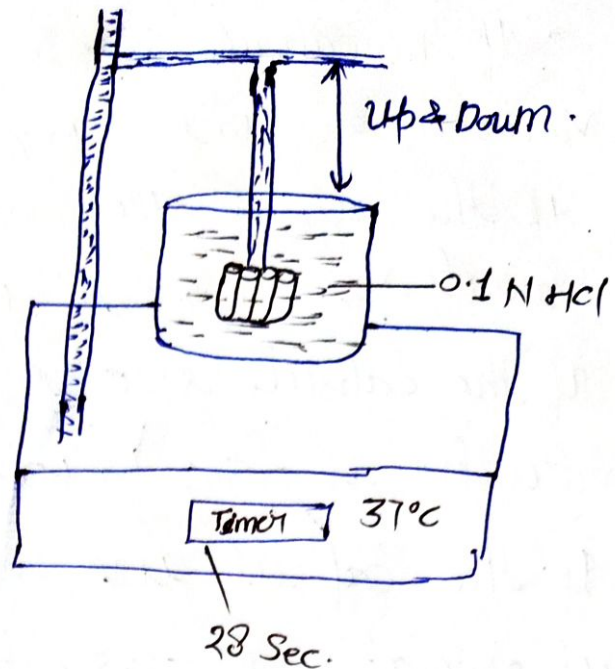 Up & Down.
0.1 N HCl
Timer 37°C
28 Sec.